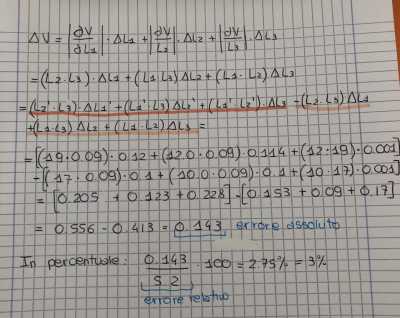 ΔV = |∂V/∂L1| · ΔL1 + |∂V/L2| · ΔL2 + |∂V/L3| · ΔL3
= (L2 · L3) · ΔL1 + (L1 · L3) ΔL2 + (L1 · L2) ΔL3
= (L2' · L3) · ΔL1' + (L1' · L3) ΔL2' + (L1' · L2') · ΔL3 - (L2 · L3) ΔL1
+ (L1 · L3) ΔL2 + (L1 · L2) ΔL3 =
= [(19 · 0.09) · 0.12 + (12.0 · 0.09) · 0.114 + (12 · 19) · 0.001]
- [(17 · 0.09) · 0.1 + (10.0 · 0.09) · 0.1 + (10 · 17) · 0.001]
= [0.205 + 0.123 + 0.228] - [0.153 + 0.09 + 0.17]
= 0.556 - 0.413 = 0.143 errore assoluto
In percentuale: 0.143/5.2 · 100 = 2.75% = 3%
errore relativo